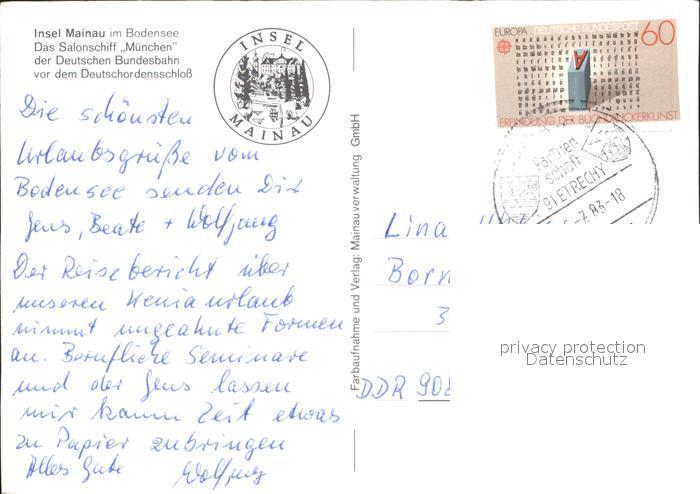 Insel Mainau im Bodensee
Das Salonschiff „München"
der Deutschen Bundesbahn
vor dem Deutschordensschloß
INSEL
MAINAU
EUROPA DEUTSCHE BUNDESPOST 60
ERFINDUNG DER BUCHDRUCKERKUNST
Partner-
schaft
91 ETRECHY
7.83-18
Die schönsten
Urlaubsgrüße vom
Bodensee senden Dir
Jens, Beate + Wolfgang
Der Reisebericht über
unseren Keniaurlaub
nimmt ungeahnte Formen
an. Berufliche Seminare
und der Jens lassen
mir kaum Zeit etwas
zu Papier zubringen
Alles Gute Wolfgang
Farbaufnahme und Verlag: Mainauverwaltung GmbH
Lina
Born
3
DDR 908
privacy protection
Datenschutz